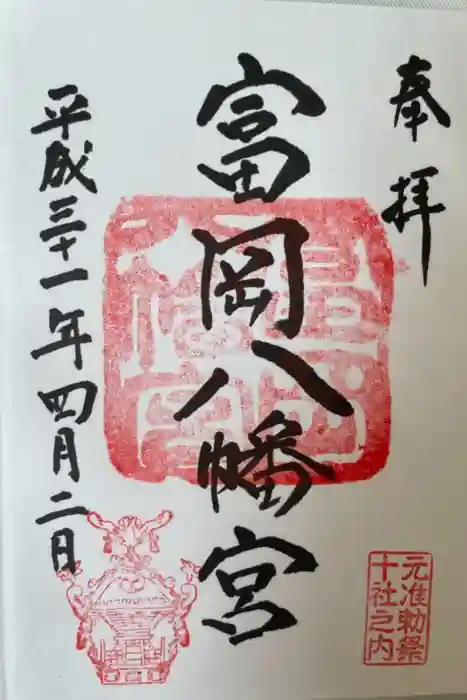 奉拝
富岡八幡宮
平成三十一年四月二日
元准勅祭
十社之内